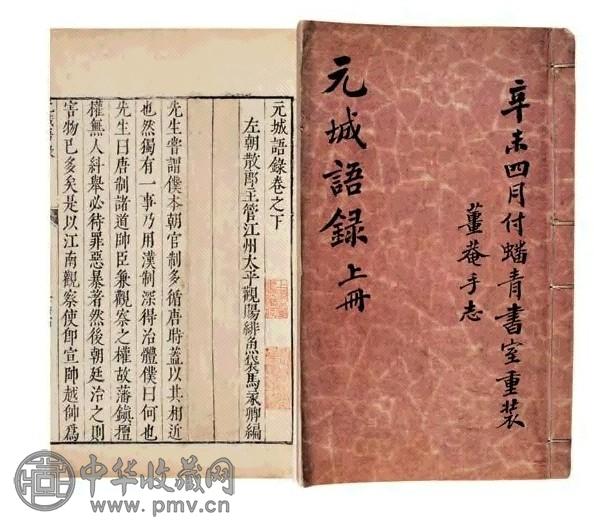 辛未四月付蟠青書室重裝
薑菴手志
元城語録 上冊
元城語錄卷之下
左朝散郎主管江州太平觀賜緋魚袋馬永卿編
先生嘗謂僕本朝官制多循唐時蓋以其相近
也然獨有一事乃用漢制深得治體僕曰何也
先生曰唐制諸道帥臣兼觀察之權故藩鎮擅
權無人糾舉必待罪惡暴著然後朝廷治之則
害物已多矣是以江南觀察使即宣帥越帥爲
中华收藏网
www.pmv.cn